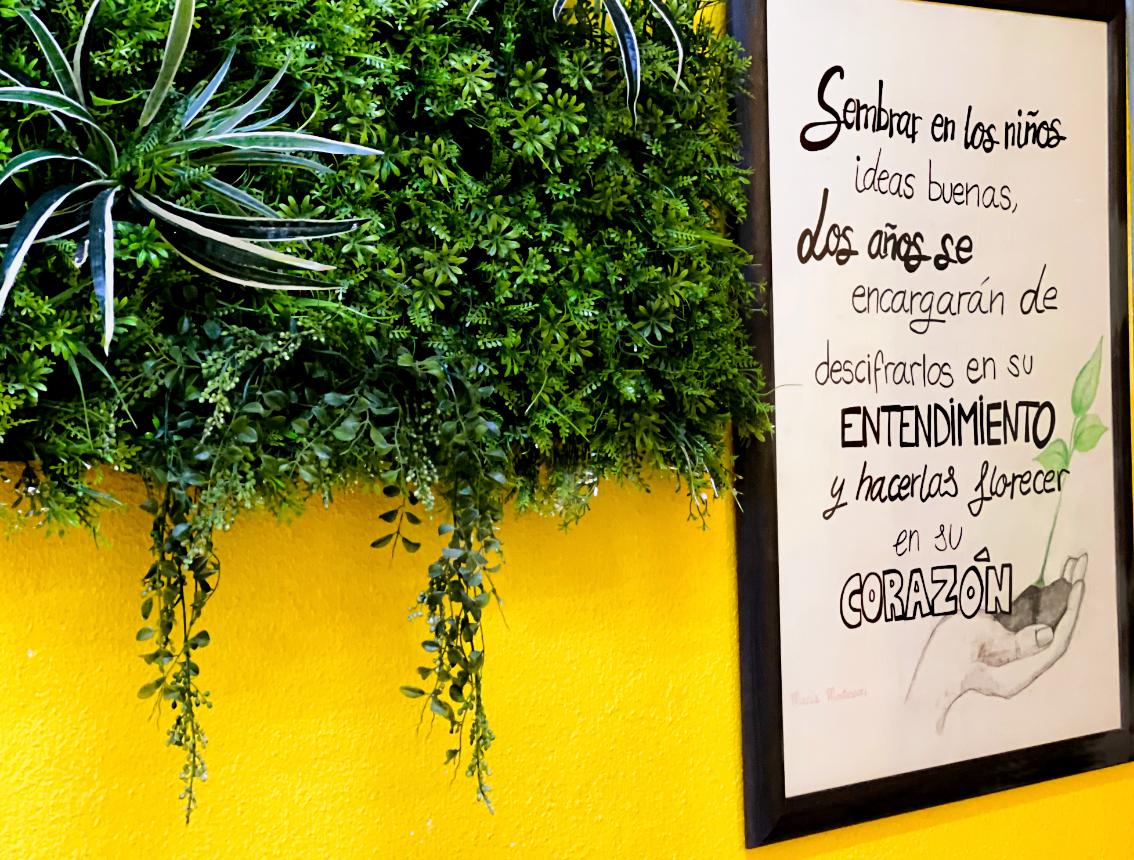 Sembrar en los niños
ideas buenas,
Los años se
encargarán de
descifrarlos en su
ENTENDIMIENTO
y hacerlas florecer
en su
CORAZÓN